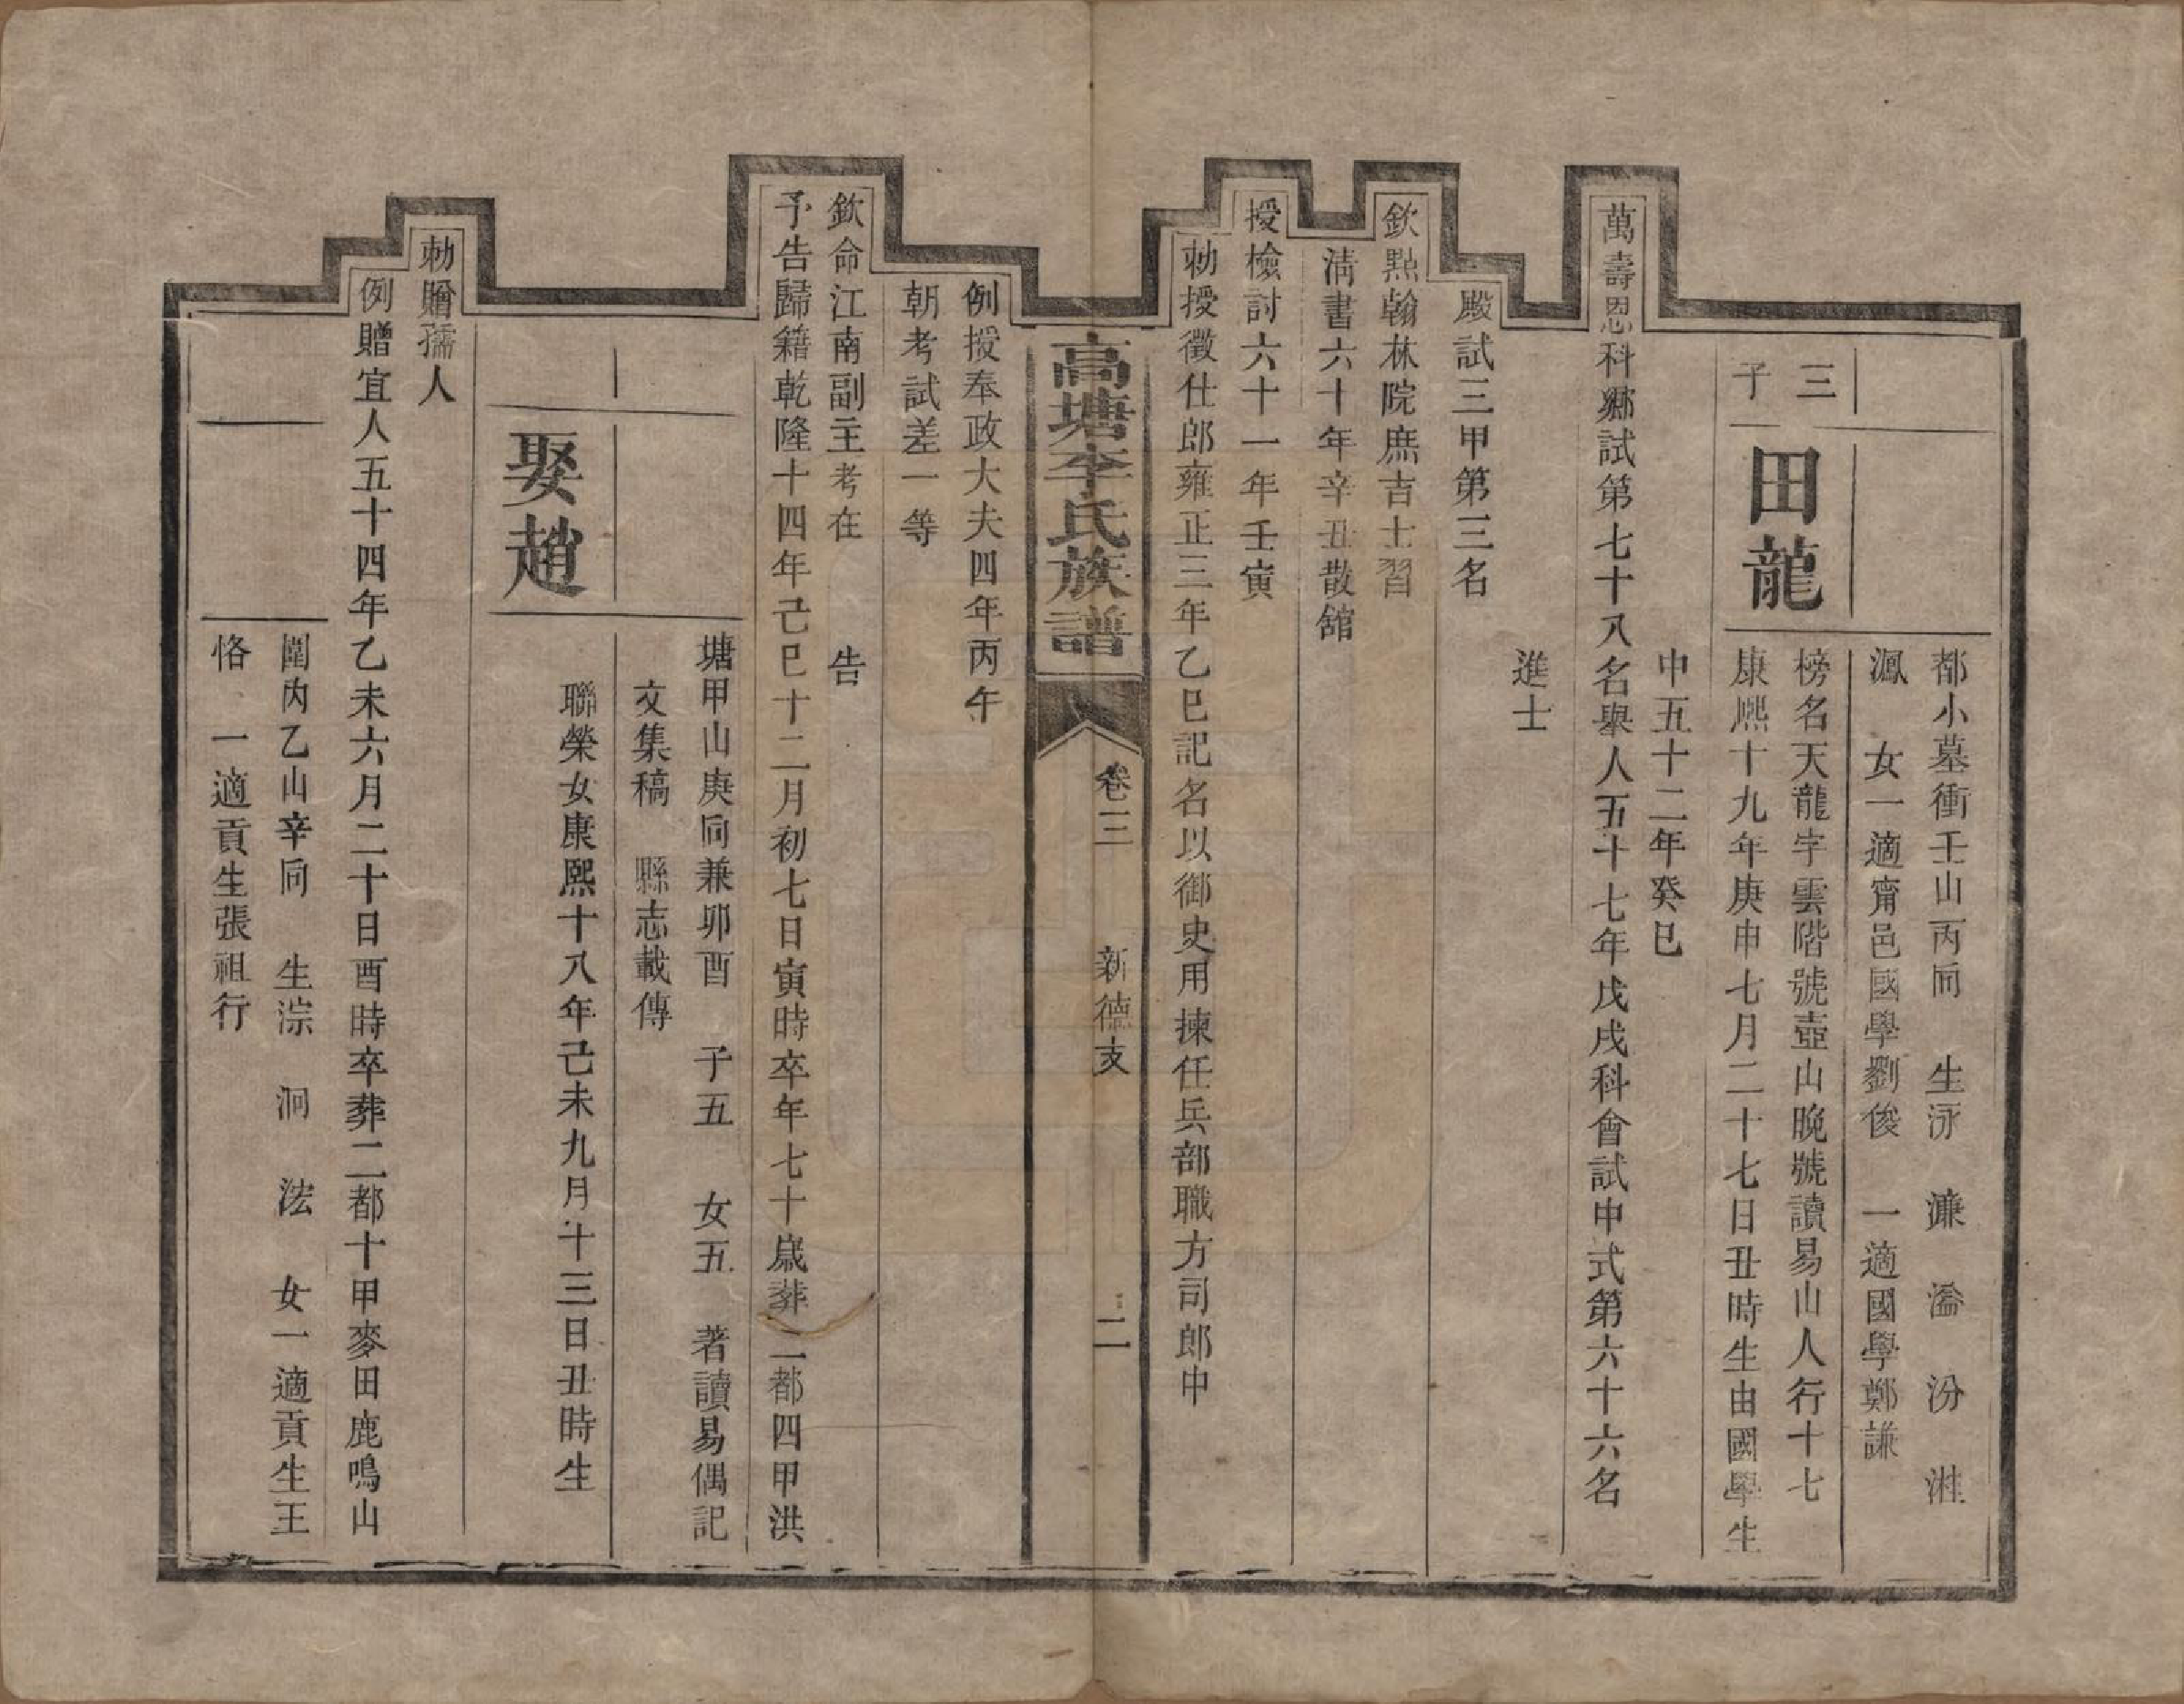 都小墓衝壬山丙向　生泳　濂　瀹　汾　湴
渢　女一適甯邑國學劉俊　一適國學鄭謙
三子
田龍
榜名天龍字雲階號壺山晚號讀易山人行十七
康熙十九年庚申七月二十七日丑時生由國學生
中五十二年癸巳
萬壽恩科鄉試第七十八名舉人五十七年戊戌科會試中式第六十六名
進士
殿試三甲第三名
欽點翰林院庶吉士習
清書六十年辛丑散舘
授檢討六十一年壬寅
勅授徵仕郎雍正三年乙巳記名以御史用揀任兵部職方司郎中
高塘李氏族譜
卷三　新德支　二
例授奉政大夫四年丙午
朝考試差一等
欽命江南副主考在　告
予告歸籍乾隆十四年己巳十二月初七日寅時卒年七十歲葬二都四甲洪
塘甲山庚向兼卯酉　子五　女五　著讀易偶記
文集稿　縣志載傳
娶趙
聯榮女康熙十八年己未九月十三日丑時生
勅贈孺人
例贈宜人五十四年乙未六月二十日酉時卒葬二都十甲麥田鹿鳴山
圍內乙山辛向　生淙　泂　浤　女一適貢生王
恪　一適貢生張祖行